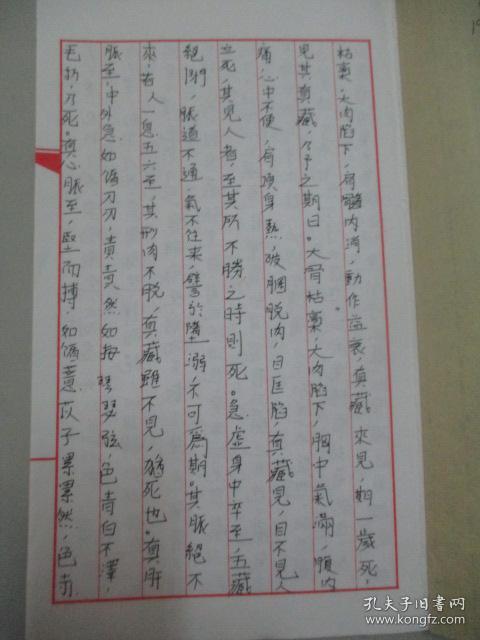 枯稾，大肉陷下，肩髓内消，動作益衰，真藏來見，期一歲死，
見其真藏，乃予之期日。大骨枯稾，大肉陷下，胸中氣滿，腹内
痛，心中不便，肩項身熱，破䐃脱肉，目匡陷，真藏見，目不見人，
立死，其見人者，至其所不勝之時則死。急虛身中卒至，五藏
絕閉，脹道不通，氣不往來，譬於墮溺，不可爲期。其脹絕不
來，若人一息五六至，其形肉不脱，真藏雖不見，猶死也。真肝
脹至，中外急，如循刀刃，責責然如按琴瑟弦，色青白不澤，
毛折，乃死。真心脹至，堅而搏，如循薏苡子累累然，色赤
孔夫子旧书网
www.kongfz.com